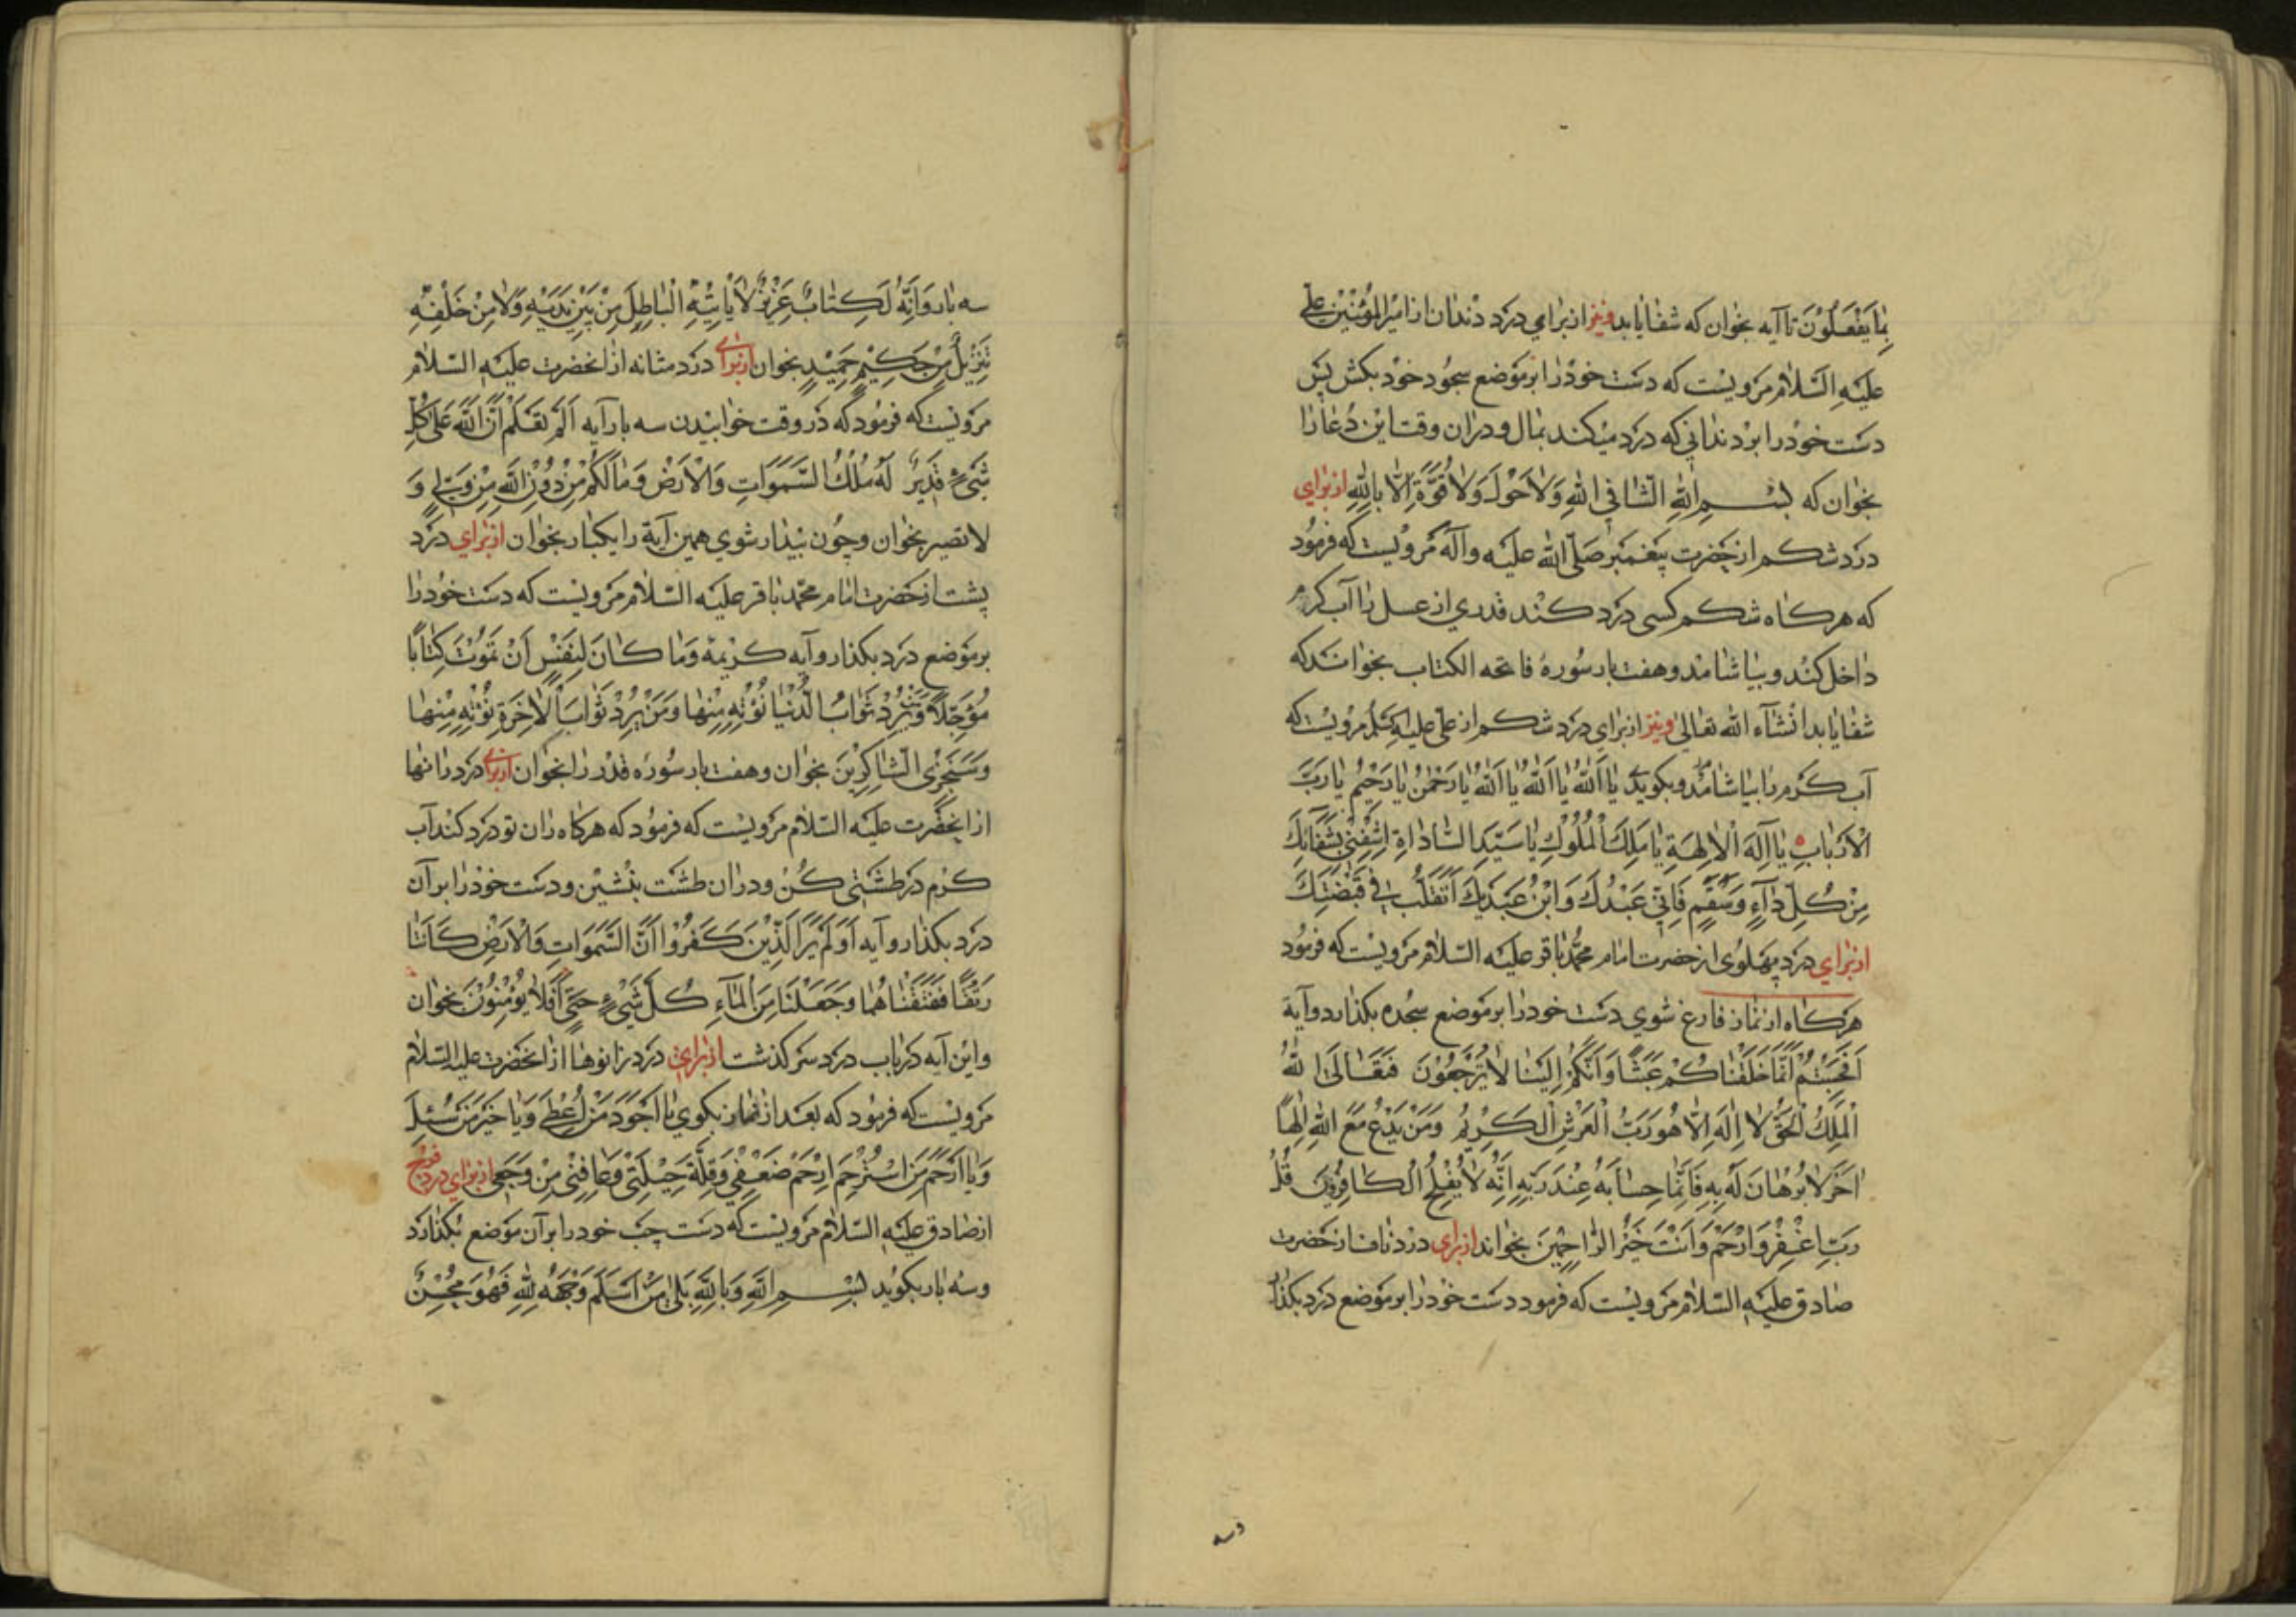 بِمَا يَفْعَلُوْنَ تا آيه بخوان كه شفا يابد ونيز از براي درد دندان از امير المؤمنين علي
عليه السلام مرويست كه دست خود را بر موضع سجود خود بكش پس
دست خود را بر دنداني كه درد ميكند بمال و دران وقت اين دعا را
بخوان كه بسم الله الشافي الله ولا حول ولا قوة الا بالله از براي
درد شكم از حضرت پيغمبر صلى الله عليه وآله مرويست كه فرمود
كه هر كاه شكم كسى درد كند قدري از عسل را آب كرم
داخل كند و بياشامد و هفت بار سوره فاتحه الكتاب بخواند كه
شفا يابد انشآء الله تعالى ونيز از براي درد شكم از علي عليه مرويست كه
آب كرم را بياشامد و بكويد يا الله يا الله يا الله يا رحمن يا رحيم يا رب
الارباب يا اله الالهة يا ملك الملوك يا سيد السادات اشفني بشفائك
من كل دآء وسقم فاني عبدك وابن عبديك اتقلب في قبضتك
از براي درد پهلوى از حضرت امام محمد باقر عليه السلام مرويست كه فرمود
هر كاه از نماز فارغ شوي دست خود را بر موضع سجده بكذارد و آية
افحسبتم انما خلقناكم عبثا وانكم الينا لا ترجعون فتعالى الله
الملك الحق لا اله الا هو رب العرش الكريم ومن يدع مع الله الها
اخر لا برهان له به فانما حسابه عند ربه انه لا يفلح الكافرون قل
رب اغفر وارحم وانت خير الراحمين بخواند از براى درد ناف از حضرت
صادق عليه السلام مرويست كه فرمود دست خود را بر موضع درد بكذار
وسه
سه بار وانه لكتاب عزيز لا ياتيه الباطل من بين يديه ولا من خلفه
تنزيل من حكيم حميد بخوان از براى درد مثانه از انحضرت عليه السلام
مرويست كه فرمود كه در وقت خوابيدن سه بار آيه الم تعلم ان الله على كل
شيء قدير له ملك السموات والارض وما لكم من دون الله من ولي و
لا نصير بخوان و چون بيدار شوي همين آية را يكبار بخوان از براي درد
پشت از حضرت امام محمد باقر عليه السلام مرويست كه دست خود را
بر موضع درد بكذار و آيه كريمة وما كان لنفس أن تموت كتابا
مؤجلا ومن يرد ثواب الدنيا نؤته منها ومن يرد ثواب الاخرة نؤته منها
وسنجزى الشاكرين بخوان و هفت بار سوره قدر را بخوان از براى درد رانها
از انحضرت عليه السلام مرويست كه فرمود كه هر كاه ران تو درد كند آب
كرم در طشتى كن و دران طشت بنشين و دست خود را بر آن
درد بكذار و آيه اولم ير الذين كفروا ان السموات والارض كانتا
رتقا ففتقناهما وجعلنا من المآء كل شيء حي افلا يؤمنون بخوان
واين آيه در باب درد سر كذشت از براي درد زانوها از انحضرت عليه السلام
مرويست كه فرمود كه بعد از نماز بكوي يا اجود من اعطى ويا خير من سئل
ويا ارحم من استرحم ارحم ضعفي وقلة حيلتي وعافني من وجعي از براي درد فرج
از صادق عليه السلام مرويست كه دست چپ خود را بر آن موضع بكذارد
وسه بار بكويد بسم الله وبالله بلى من اسلم وجهه لله فهو محسن